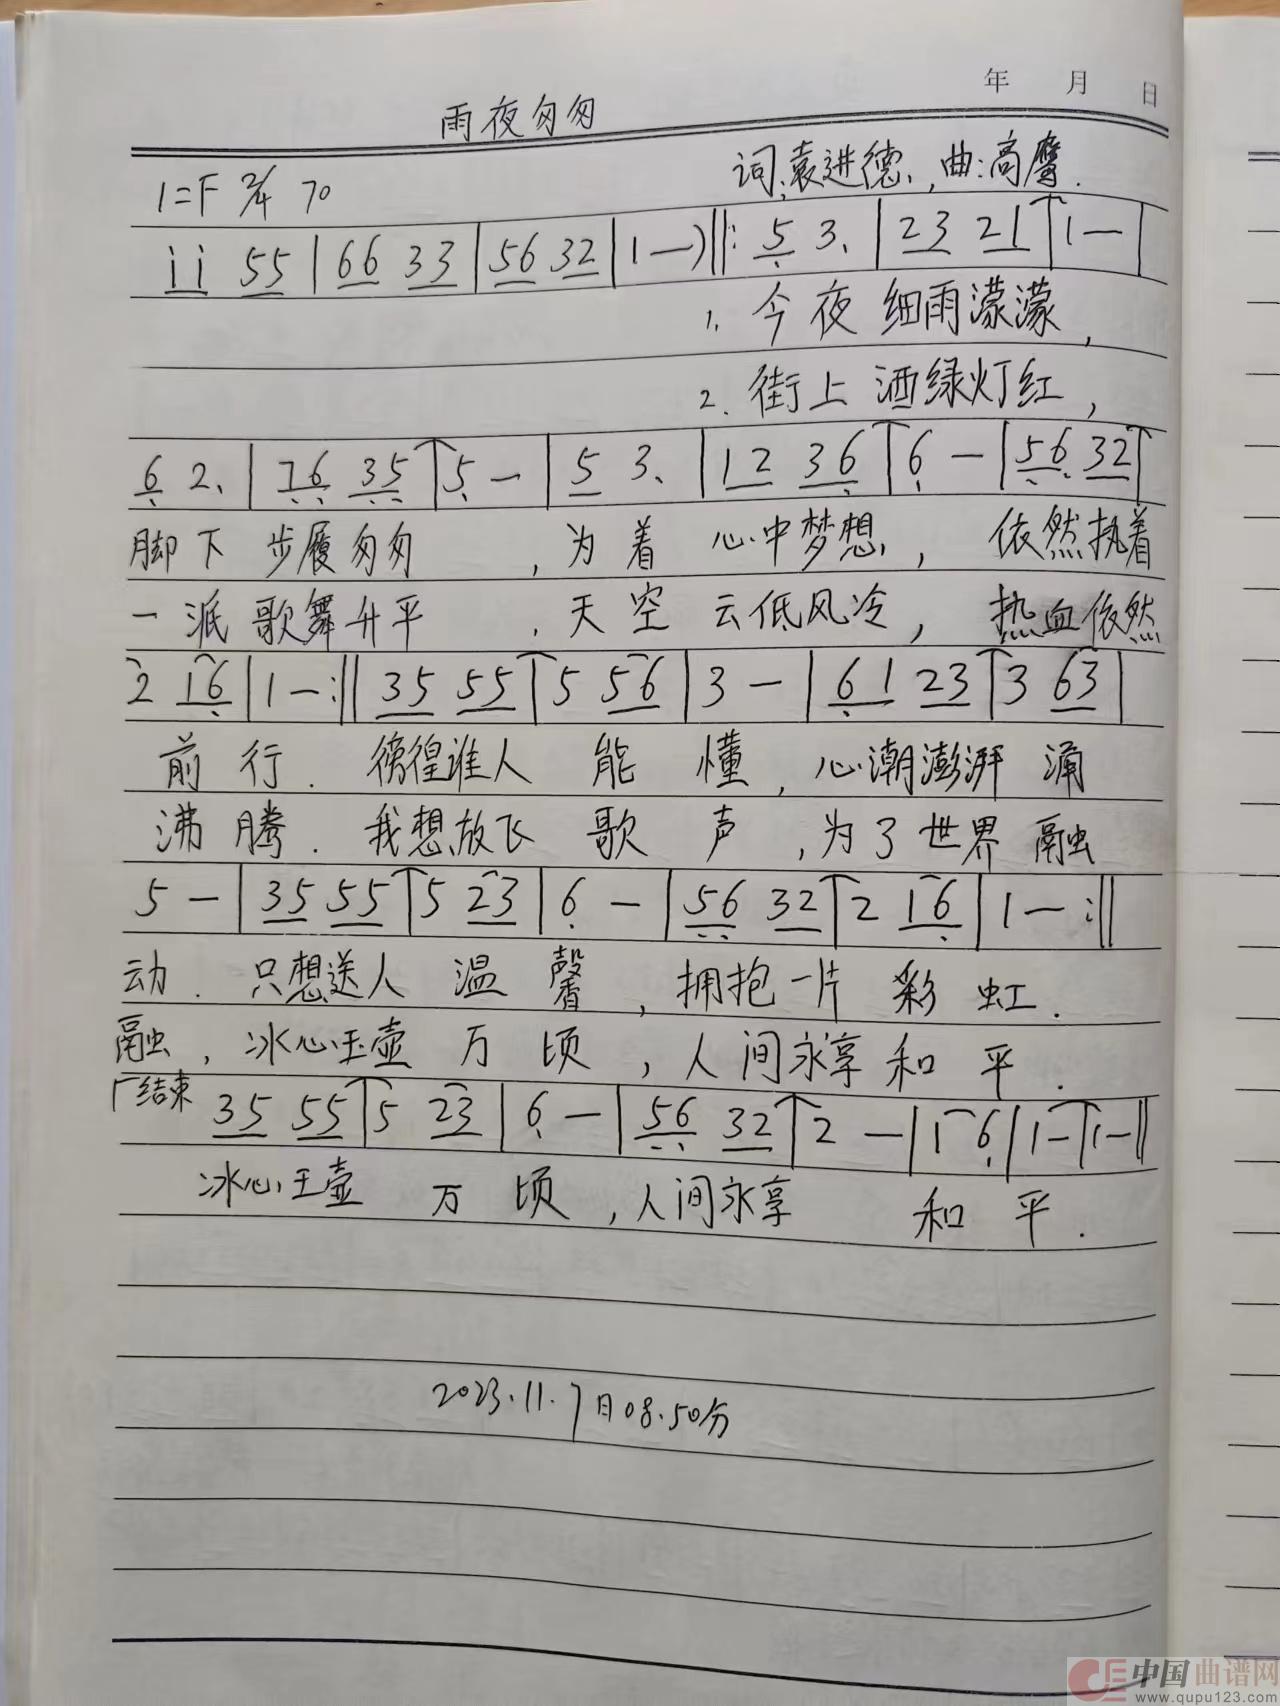 年 月 日
雨夜匆匆
1=F 2/4 70 词:袁进德,曲:高鹰.
i i 55 | 66 33 | 56 32 | 1 — ) ‖: 5 3. | 23 21 | 1 — |
1. 今夜 细雨濛濛,
2. 街上 酒绿灯红,
6 2. | 76 35 | 5 — | 5 3. | 12 36 | 6 — | 56 32 |
脚下 步履匆匆 ,为着 心中梦想, 依然执着
一派 歌舞升平 ,天空 云低风冷, 热血依然
2 16 | 1 — :‖ 35 55 | 5 56 | 3 — | 61 23 | 3 63 |
前行. 徬徨谁人 能 懂,心潮澎湃 涌
沸腾. 我想放飞 歌 声,为了世界 融
5 — | 35 55 | 5 23 | 6 — | 56 32 | 2 16 | 1 — :‖
动. 只想送人 温 馨,拥抱一片 彩 虹.
融,冰心玉壶 万 顷,人间永享 和 平.
结束 35 55 | 5 23 | 6 — | 56 32 | 2 — | 1 6 | 1 — | 1 — ‖
冰心玉壶 万 顷,人间永享 和 平.
2023.11.7日08.50分
中国曲谱网
www.qupu123.com